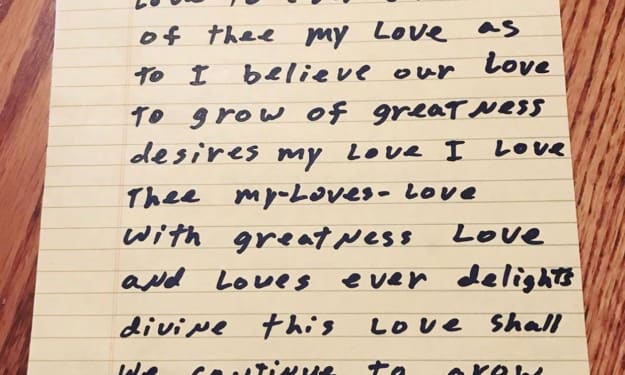 of thee my Love as
to I believe our Love
to grow of greatness
desires my Love I Love
Thee my-Loves-Love
with greatness Love
and Loves ever delights
divine this Love shall
we continue to grow